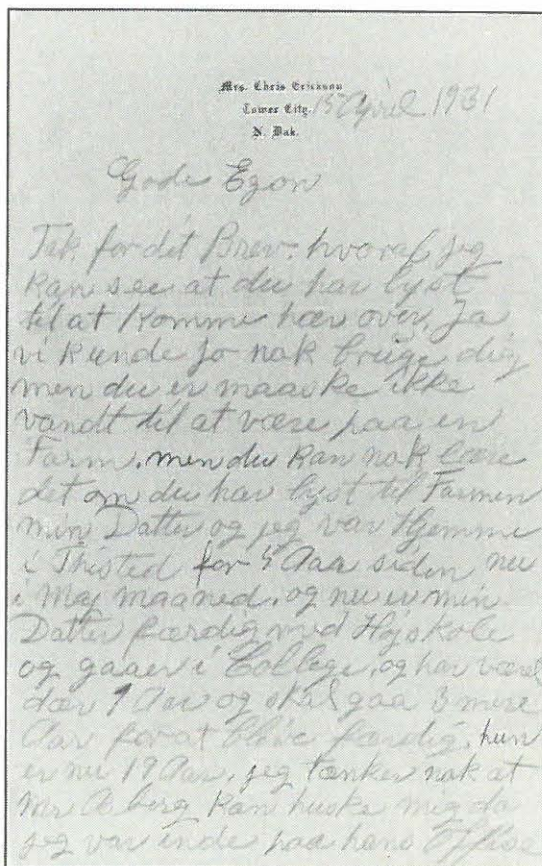 Mrs. Chris Erickson
Tower City. 15 April 1931
N. Dak.
Gode Egon
Tak for dit Brev. hvoraf jeg
kan see at du har lyst
til at komme hær over. Ja
vi kunde jo nok bruge dig
men du er maaske ikke
vandt til at være paa en
Farm. men du kan nok lære
det om du har lyst til Farmen
min Datter og jeg var Hjemme
i Thisted for 5 Aar siden nu
i Maj maaned. og nu er min
Datter færdig med Højskole
og gaaer i College. og har været
dær 1 Aar og skal gaa 3 mere
Aar for at blive færdig. hun
er nu 19 Aar. jeg tænker nok at
Mr Aberg kan huske mig da
jeg var inde paa hans Office